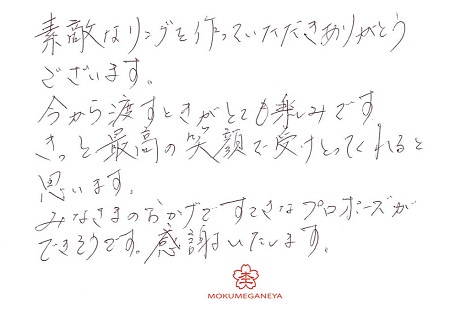 素敵なリングを作っていただきありがとう
ございます。
今から渡すときがとても楽しみです。
きっと最高の笑顔で受けとってくれると
思います。
みなさまのおかげですてきなプロポーズが
できそうです。感謝いたします。
MOKUMEGANEYA